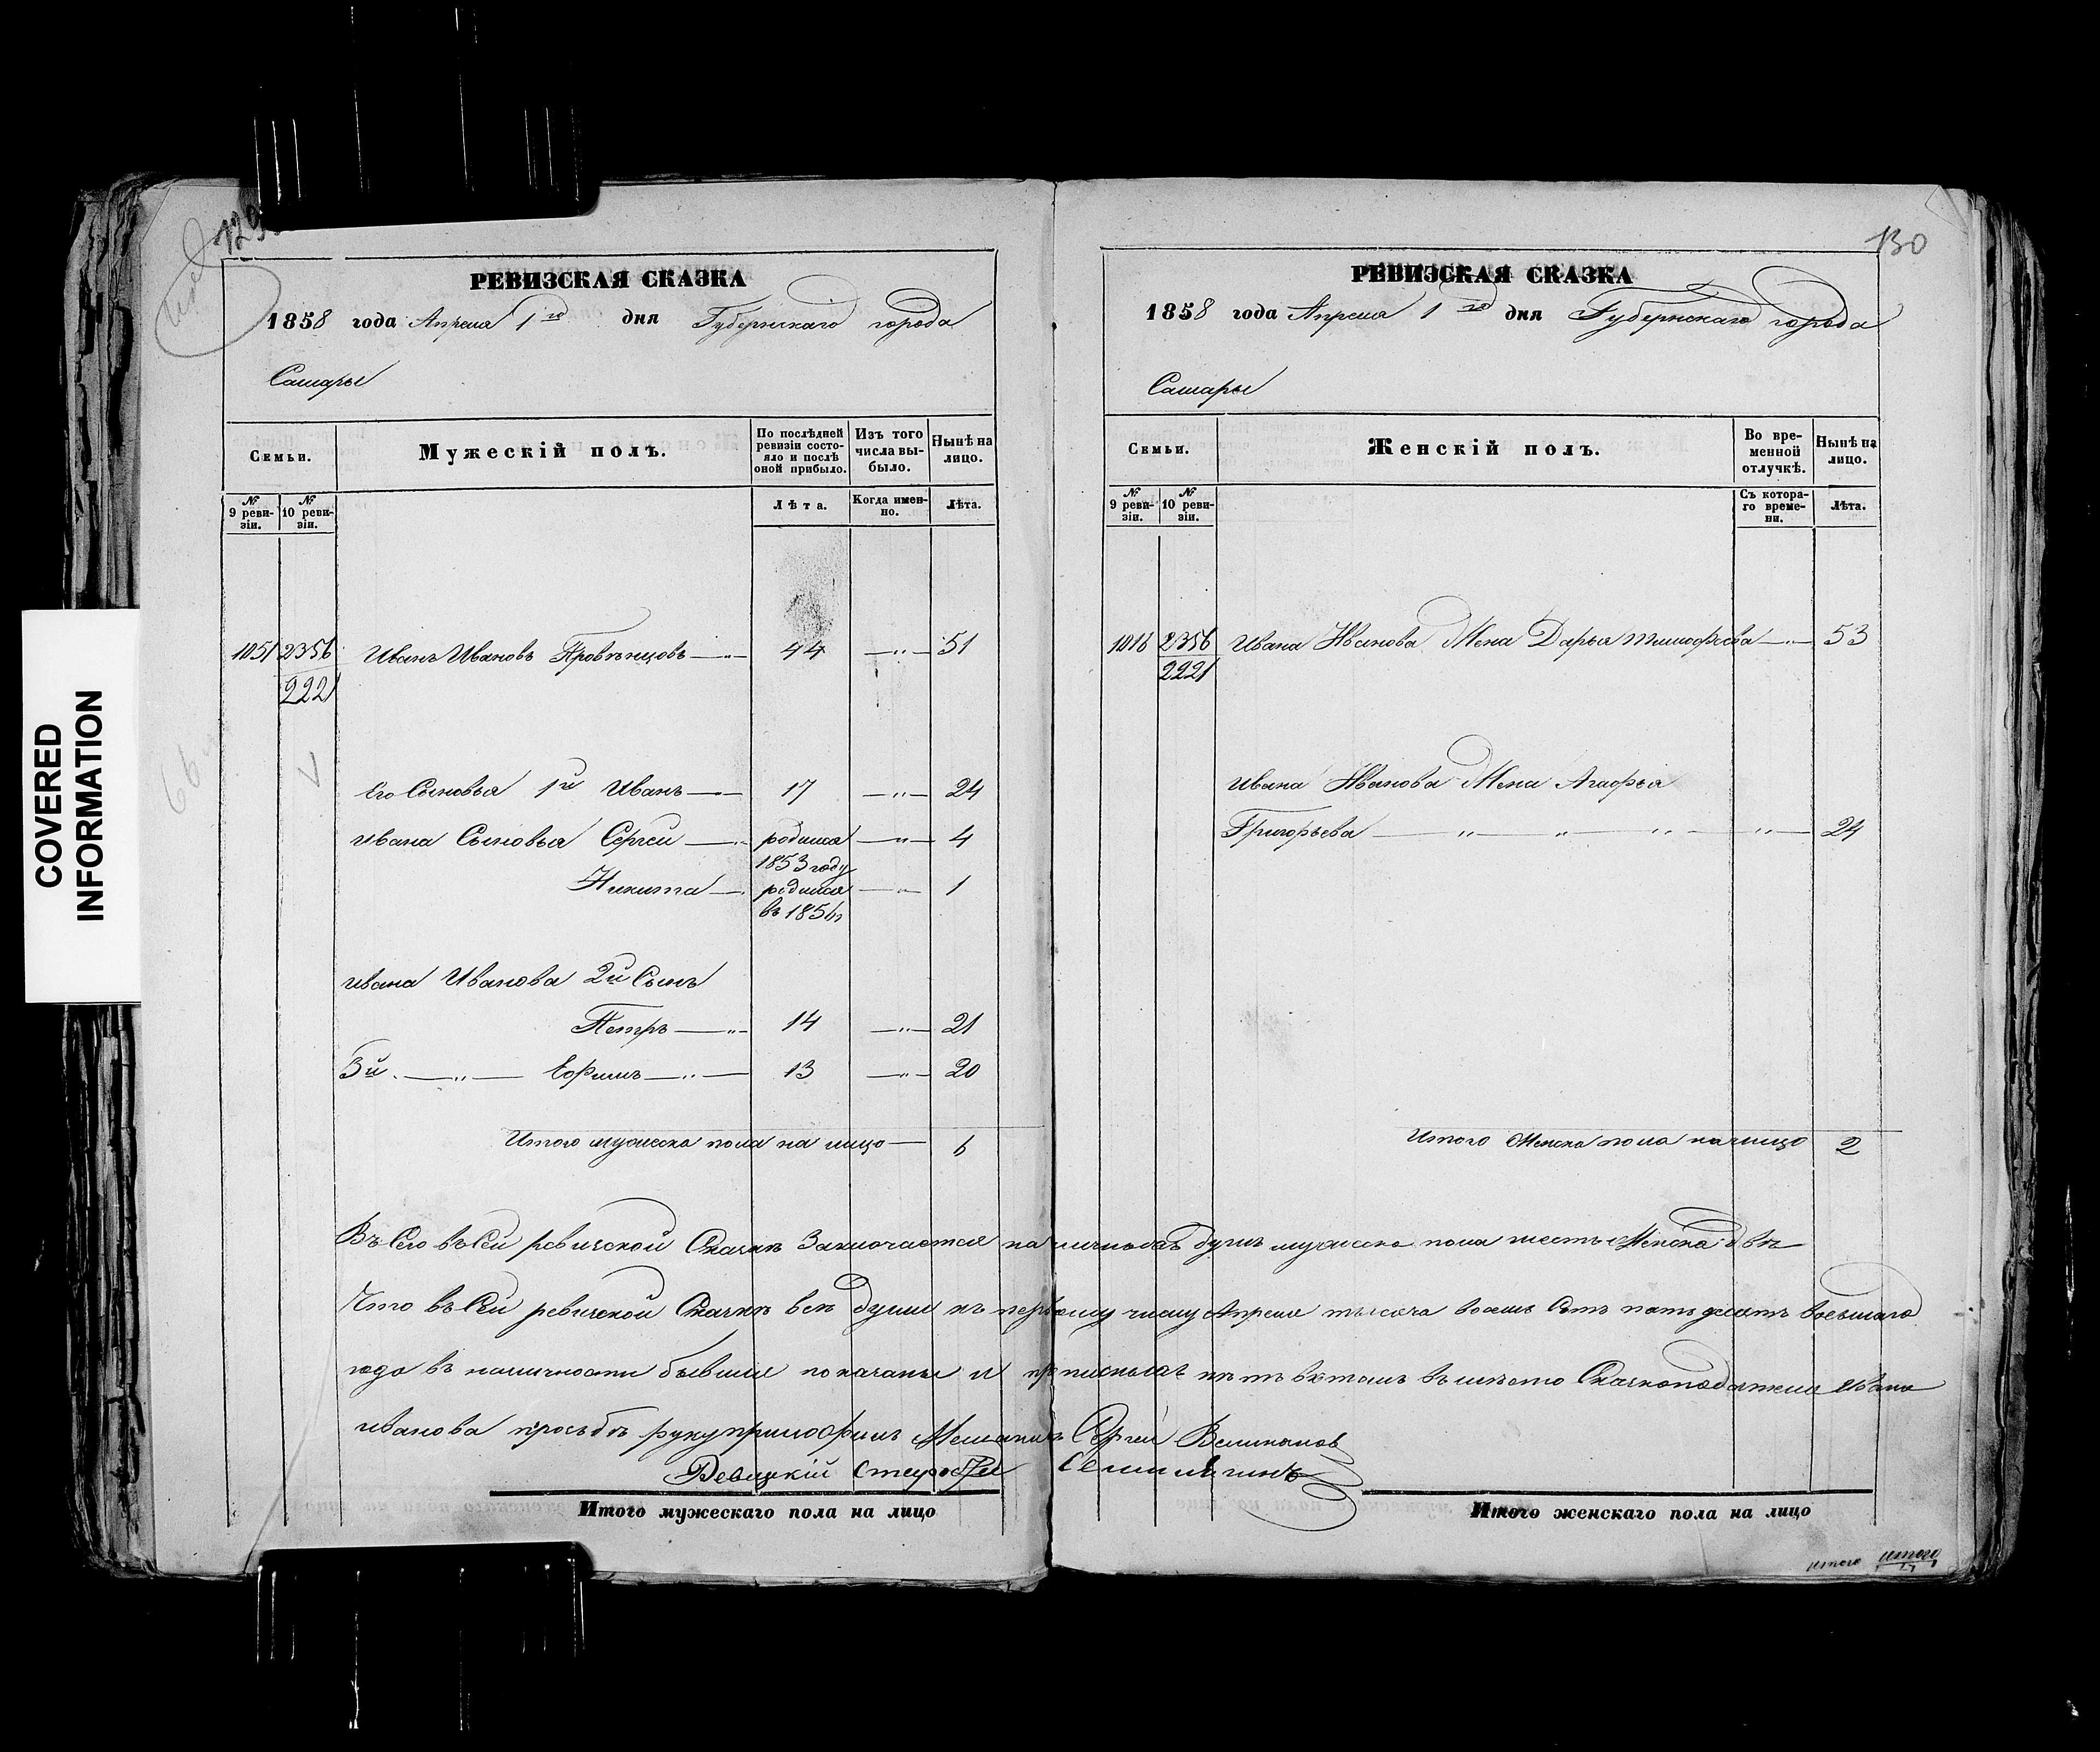 COVERED
INFORMATION
129
РЕВИЗСКАЯ СКАЗКА
1858 года Апреля 1го дня Губернскаго города
Самары
Семьи.
Мужескій полъ.
По послѣдней ревизіи состояло и послѣ оной прибыло.
Изъ того числа выбыло.
Нынѣ на лицо.
№ 9 ревизіи.
№ 10 ревизіи.
Лѣта.
Когда именно.
Лѣта.
1051 2356 Иванъ Ивановъ 44 —„— 51
2221
Его Сыновья 1й Иванъ 17 —„— 24
Ивана Сыновья Сергей родился —„— 4
1853 году
Никита родился —„— 1
въ 1856
Ивана Иванова 2й Сынъ
Петръ 14 —„— 21
3й —„— Ефимъ 13 —„— 20
Итого мужеска пола на лицо 6
130
РЕВИЗСКАЯ СКАЗКА
1858 года Апреля 1го дня Губернскаго города
Самары
Семьи.
Женскій полъ.
Во временной отлучкѣ.
Нынѣ на лицо.
№ 9 ревизіи.
№ 10 ревизіи.
Съ котораго времени.
Лѣта.
1016 2356 Ивана Иванова Жена Дарья Тимофѣева —„— 53
2221
Ивана Иванова Жена Агафья
Григорьева —„— „ — „ — „ — 24
Итого Женска пола на лицо 2
Въ Сей ревиской Сказкѣ Заключается наличныхъ душъ мужеска пола шесть Женска двѣ
Что въ Сей ревиской Сказкѣ всѣ души къ первому числу Апреля тысяча восемь Сотъ пятьдесятъ восьмаго
года въ наличности бывшие показаны и нѣтъ вътомъ вместо Сказкоподателя Ивана
Иванова прозьбѣ руку приложилъ Мещанинъ Сергей
Ревизкій Староста
Итого мужескаго пола на лицо
Итого женскаго пола на лицо
итого итого